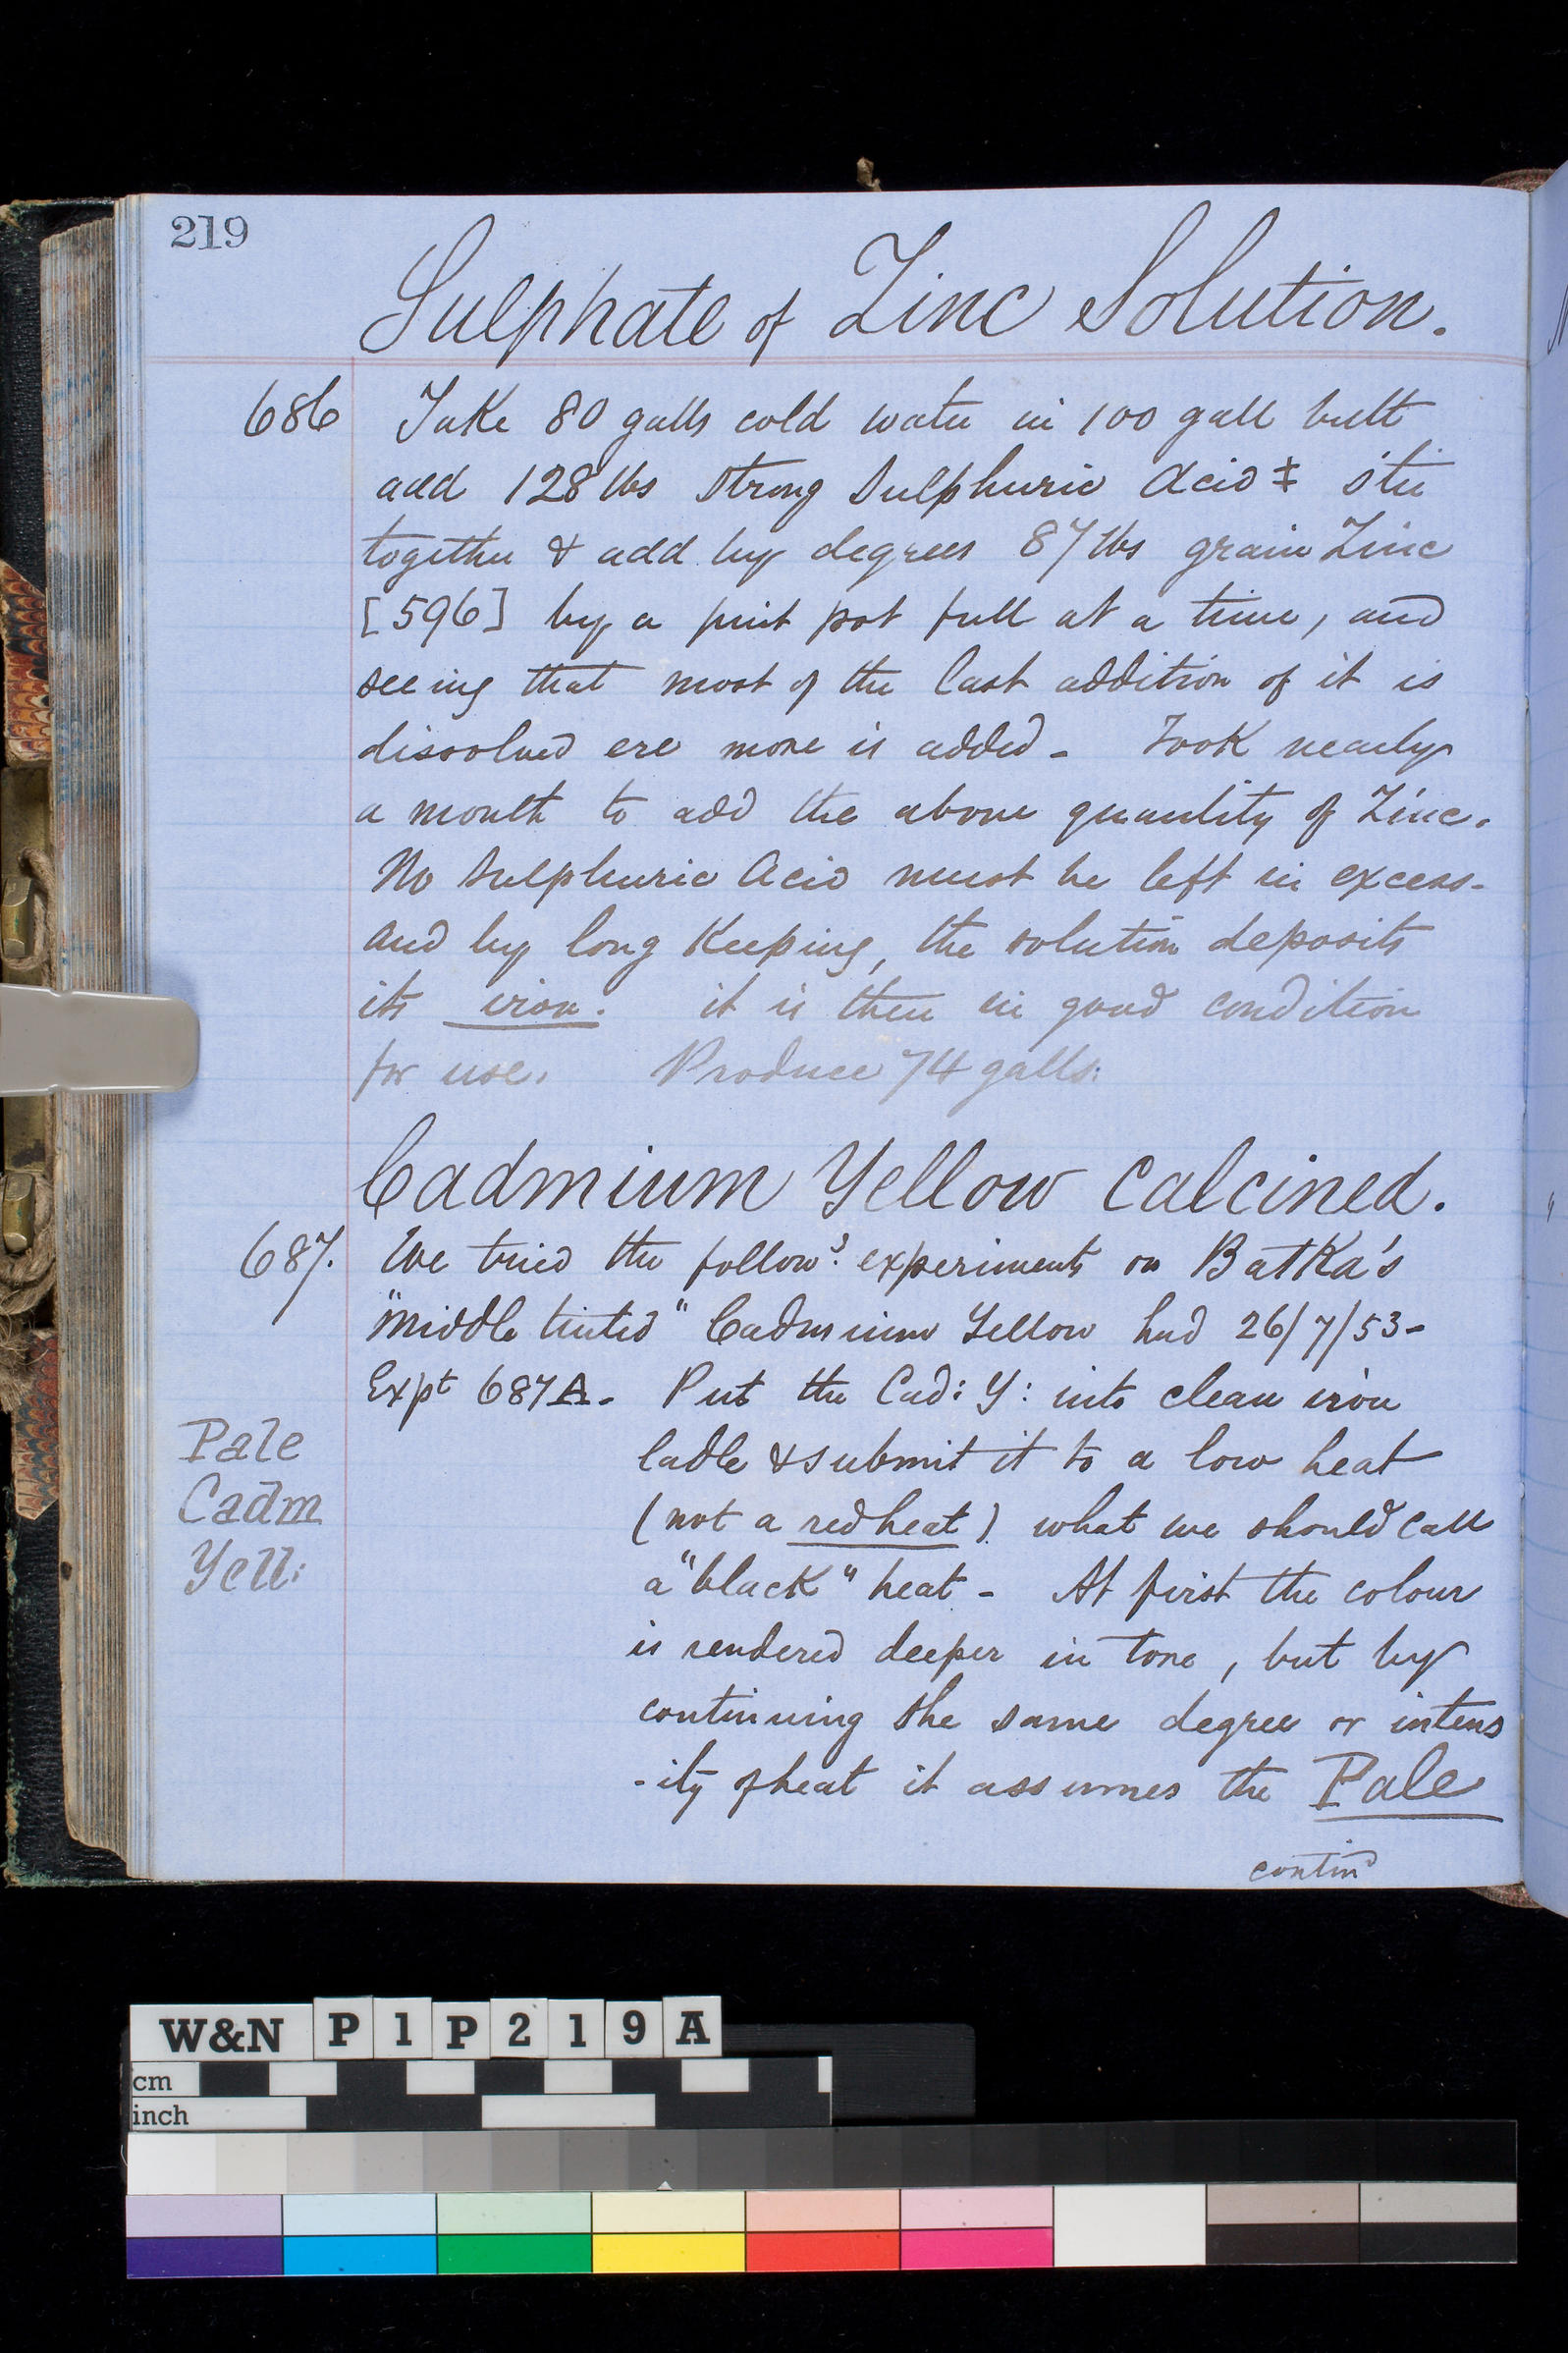 219
Sulphate of Zinc Solution.
686 Take 80 galls cold water in 100 gall butt
add 128 lbs strong Sulphuric Acid ‡ stir
together & add by degrees 87 lbs grain Zinc
[596] by a pint pot full at a time, and
seeing that most of the last addition of it is
dissolved ere more is added - Took nearly
a month to add the above quantity of Zinc.
No Sulphuric Acid must be left in excess -
and by long Keeping, the solution deposits
its iron. it is then in good condition
for use. Produce 74 galls:
Cadmium Yellow Calcined.
687. We tried the follow:g experiments on Batka's
"Middle tinted" Cadmium Yellow had 26/7/53 -
Expt 687A - Put the Cad: Y: into clean iron
Pale
Cadm
Yell:
ladle & submit it to a low heat
(not a red heat) what we should call
a "black" heat - At first the colour
is rendered deeper in tone, but by
continuing the same degree or intens
-ity of heat it assumes the Pale
contind
W&N P1P219A
cm
inch